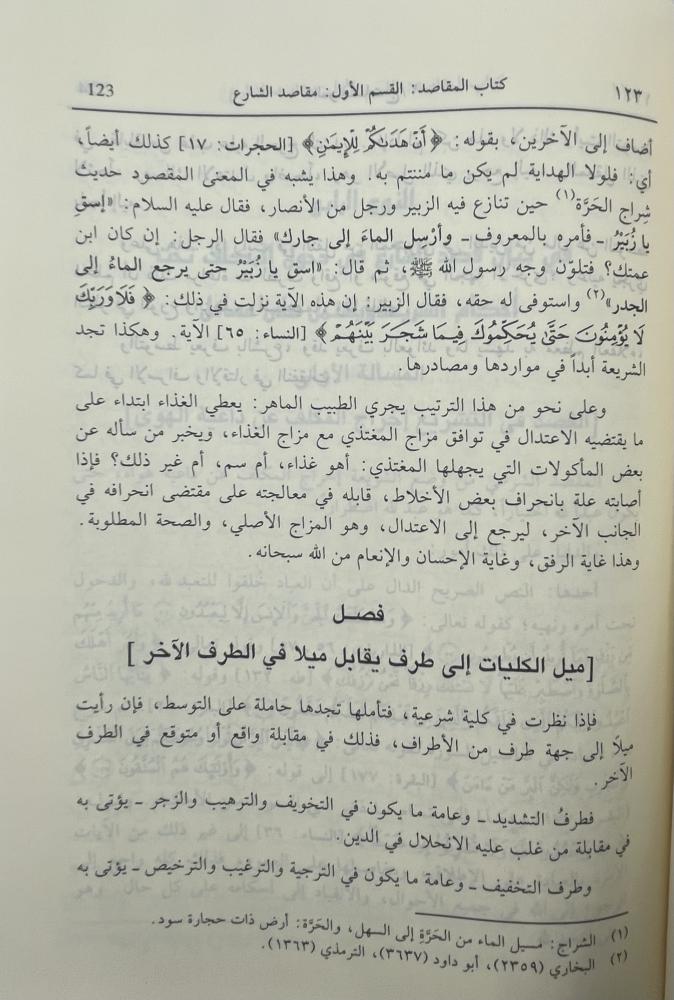 ١٢٣ كتاب المقاصد: القسم الأول: مقاصد الشارع 123
أضاف إلى الآخرين، بقوله: ﴿أَنْ هَدَىٰكُمْ لِلْإِيمَٰنِ﴾ [الحجرات: ١٧] كذلك أيضاً،
أي: فلولا الهداية لم يكن ما مننتم به. وهذا يشبه في المعنى المقصود حديث
شِراج الحَرَّة(١) حين تنازع فيه الزبير ورجل من الأنصار، فقال عليه السلام: «إسقِ
يا زُبَيْرُ ـ فأمره بالمعروف ـ وأرْسِل الماءَ إلى جارك» فقال الرجل: إن كان ابن
عمتك؟ فتلوّن وجه رسول الله ﷺ، ثم قال: «اسق يا زُبَيْرُ حتى يرجع الماءُ إلى
الجدر»(٢) واستوفى له حقه، فقال الزبير: إن هذه الآية نزلت في ذلك: ﴿فَلَا وَرَبِّكَ
لَا يُؤْمِنُونَ حَتَّىٰ يُحَكِّمُوكَ فِيمَا شَجَرَ بَيْنَهُمْ﴾ [النساء: ٦٥] الآية. وهكذا تجد
الشريعة أبداً في مواردها ومصادرها.
وعلى نحو من هذا الترتيب يجري الطبيب الماهر: يعطي الغذاء ابتداء على
ما يقتضيه الاعتدال في توافق مزاج المغتذي مع مزاج الغذاء، ويخبر من سأله عن
بعض المأكولات التي يجهلها المغتذي: أهو غذاء، أم سم، أم غير ذلك؟ فإذا
أصابته علة بانحراف بعض الأخلاط، قابله في معالجته على مقتضى انحرافه في
الجانب الآخر، ليرجع إلى الاعتدال، وهو المزاج الأصلي، والصحة المطلوبة.
وهذا غاية الرفق، وغاية الإحسان والإنعام من الله سبحانه.
فصـل
[ميل الكليات إلى طرف يقابل ميلا في الطرف الآخر ]
فإذا نظرت في كلية شرعية، فتأملها تجدها حاملة على التوسط، فإن رأيت
ميلًا إلى جهة طرف من الأطراف، فذلك في مقابلة واقع أو متوقع في الطرف
الآخر.
فطرفُ التشديد ـ وعامة ما يكون في التخويف والترهيب والزجر ـ يؤتى به
في مقابلة من غلب عليه الانحلال في الدين.
وطرف التخفيف ـ وعامة ما يكون في الترجية والترغيب والترخيص ـ يؤتى به
(١) الشراج: مسيل الماء من الحَرَّةِ إلى السهل، والحَرَّة: أرض ذات حجارة سود.
(٢) البخاري (٢٣٥٩)، أبو داود (٣٦٣٧)، الترمذي (١٣٦٣).